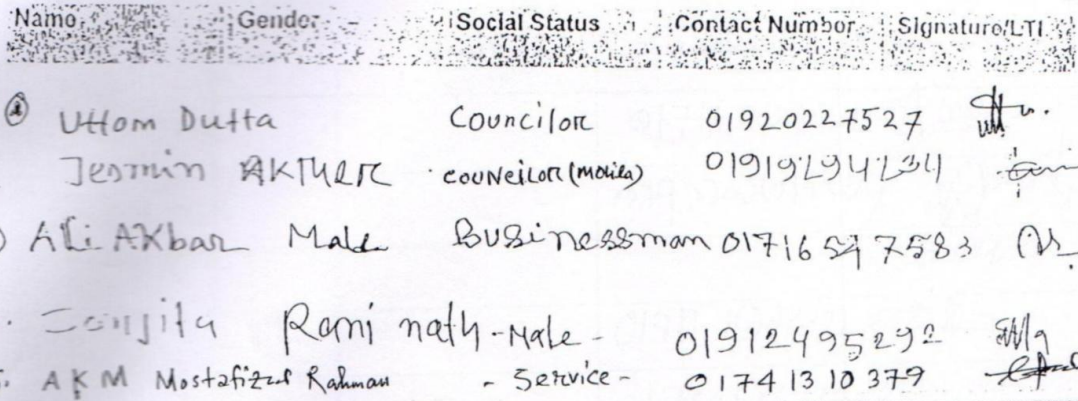 Name Gender Social Status Contact Number Signature/LTI
Uttom Dutta Councilor 01920227527
Jesmin AKTHER councilor (mohila)
Ali Akbar Male Businessman 01716597583
Rani nath - Male - 01912495292
AKM Mostafizur Rahman - Service - 01741310379